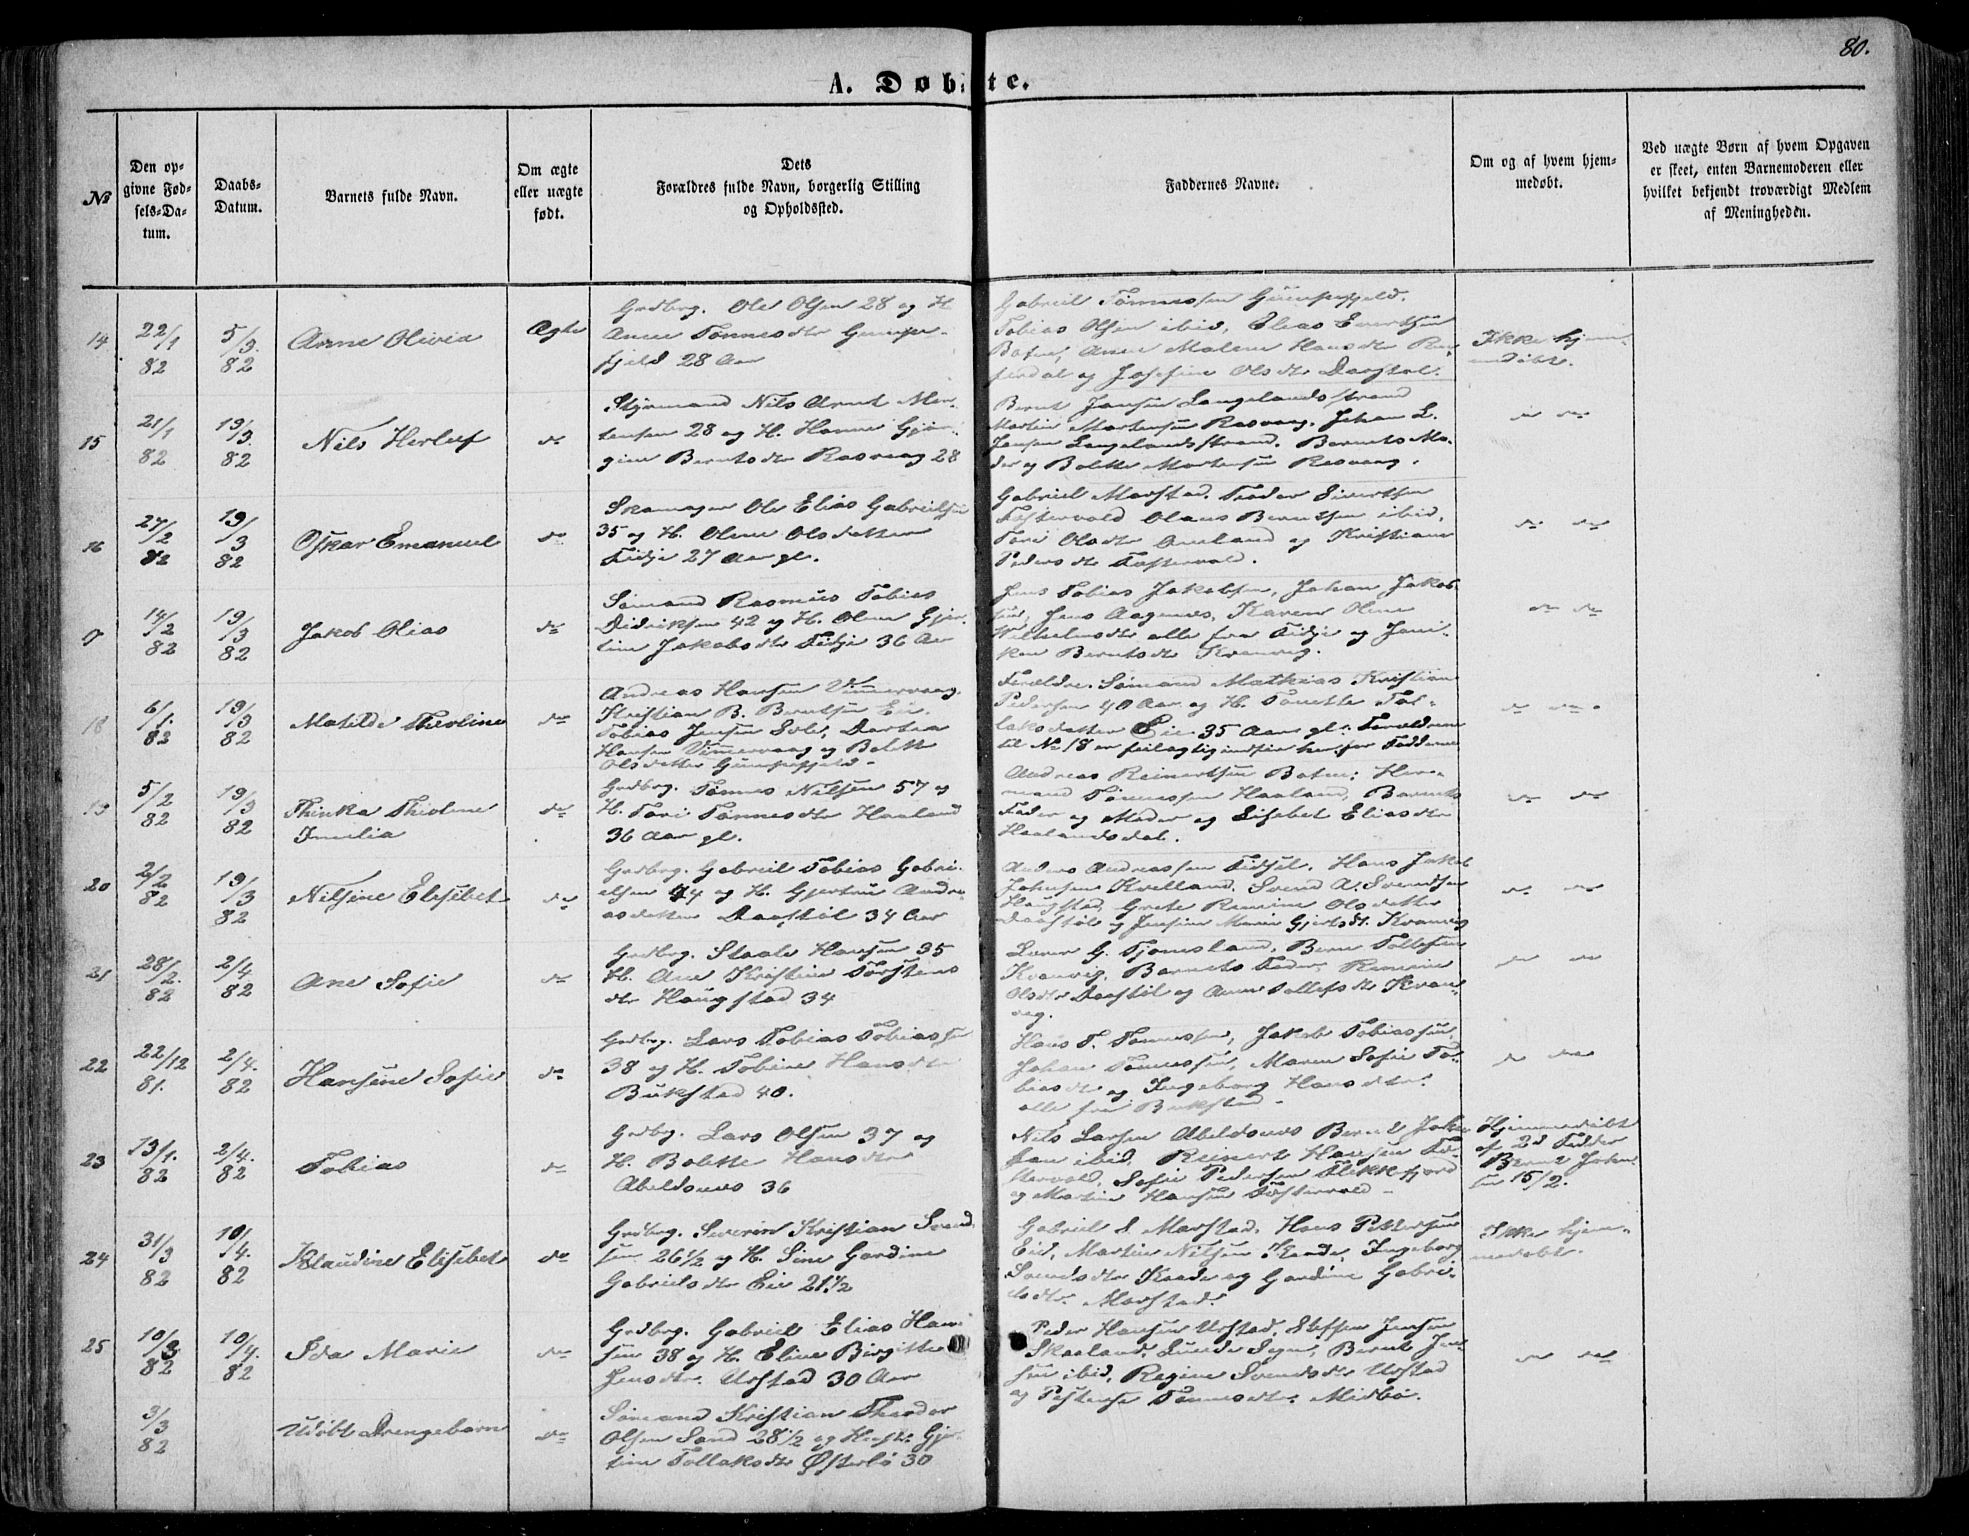 80.
A. Døbte.
№
Den op-
givne Fød-
sels-Da-
tum.
Daabs-
Datum.
Barnets fulde Navn.
Om ægte
eller uægte
født.
Dets
Forældres fulde Navn, borgerlig Stilling
og Opholdssted.
Faddernes Navne.
Om og af hvem hjem-
medøbt.
Ved uægte Børn af hvem Opgaven
er skeet, enten Barnemoderen eller
hvilket bekjendt troværdigt Medlem
af Menigheden.
14
22/1
82
5/3
82
Anne Olivia
Ægte
Grdbrg. Ole Olsen 28 og H.
Anne Tønnesdtr Gumpe-
fjeld 28 Aar
Gabriel Tønnessen Gumpefjeld.
Tobias Olsen ibid, Elias Evertsen
Anne Malene Hansdtr
og Josefine Olsdtr
Ikke hjem-
medøbt.
15
21/1
82
19/3
82
Nils Herluf
do
Styrmand Nils Arnt Mor-
tensen 28 og H. Hanne Gjør-
gine Berntsdtr Rasvaag 28
Bernt Jansen Langelandsstrand
Martin Mortensen Rasvaag. Johan L.
Jensen Langelandsstrand. Barnets Mo-
der og Bolette Mortensen Rasvaag.
do do
16
27/2
82
19/3
82
Oskar Emanuel
do
Skomager Ole Elias Gabrielsen
35 og H. Oline Olsdatter
Fidje 27 Aar gl.
Gabriel Marstad. Teodor Sivertsen
Fostervold Olaus Berntsen ibid,
Tori Olsdtr og Kristiane
Pedersdtr Fostervold.
do do
17
14/2
82
19/3
82
Jakob Olias
do
Sømand Rasmus Tobias
Didriksen 42 og H. Olene Gjer-
tine Jakobsdtr Fidje 36 Aar
Jens Tobias Jakobsen, Johan Jakob-
sen, Jens Aagenes, Karen Oline
Wilhelmsdtr alle fra Fidje og Jani-
ken Berntsdtr Kvanvig.
do do
18
6/1
82
19/3
82
Matilde Teoline
do
Andreas Hansen Vimmervaag
Kristian B. Berntsen Eie.
Tobias Jensen Dortea
Hansen Vimmervaag og Bolette
Olsdatter Gumpefjeld -
Forældre. Sømand Mathias Kristian
Pedersen 40 Aar og H. Tonette Tol-
laksdatter Eie 35 Aar gl. Forældrene
til No 18 er feilagtig indført her for Fadderne
do do
19
5/2
82
19/3
82
Thinka Thioline
Imelia
do
Grdbrg. Tønnes Nilsen 57 og
H. Tori Tønnesdtr Haaland
36 Aar gl.
Andreas Reinertsen Her-
mand Tønnessen Haaland, Barnets
Fader og Moder og Lisebet Eliasdtr
Haalandsdal.
do do
20
2/2
82
19/3
82
Nilsine Elisebet
do
Grdbrg. Gabriel Tobias Gabri-
elsen 44 og H. Gjertrine Andre-
asdatter Daastøl 34 Aar
Anders Andreassen Hans Jakob
Johnsen Kvelland. Svend A. Svendsen
Haugstad, Grete Remine Olsdatter
Daastøl og Jensine Marie Gjertsdt. Kvanvig
do do
21
28/2
82
2/4
82
Ane Sofie
do
Grdbrg. Staale Hansen 35
H. Ane Kristine Torstens
dtr Haugstad 34
G. Tjomsland, Bern Tollefsen
Kvanvig, Barnets Fader, Remine
Olsdtr Daastøl og Anne Tollefsdtr Kvan-
vig.
do do
22
22/12
81.
2/4.
82
Hansine Sofie
do
Grdbrg. Lars Tobias Tobiassen
38 og H. Tobine Hansdtr
Bukstad 40.
Hans T. Tønnessen, Jakob Tobiassen
Johan Tønnessen, Maren Sofie To-
biasdtr og Ingeborg Hansdtr.
alle fra Bukstad -
do do
23
13/1.
82
2/4.
82
Tobias
do
Grdbrg. Lars Olsen 37 og
H. Bolette Hansdtr
Abelsnes 36
Nils Larsen Abelsnes Bernt Johan-
sen ibid. Reinert Hansen Fo-
stervold, Sofie Pedersen Flekkefjord
og Martine Hansen Fostervold -
Hjemmedøbt
af 2d Fadder
Bernt Johan-
sen 15/2.
24
31/3
82
10/4.
82
Klaudine Elisebet
do
Grdbrg. Severin Kristian Svend-
sen 26½ og H. Sine Gardine
Gabrielsdtr Eie 21½
Gabriel S. Marstad, Hans Pettersen
Eie, Martin Nilsen Kaade, Ingeborg
Svendsdtr Kaade og Gardine Gabri-
elsdtr. Marstad.
Ikke hjem-
medøbt.
25
10/3
82
10/4.
82
Ida Marie
do
Grdbrg. Gabriel Elias Han-
sen 38 og H. Eline Birgitte
Jensdtr. Urstad 30 Aar
Peder Hansen Urstad, Steffen Jensen
Skaaland, Lunde Sogn, Bernt Jen-
sen ibid, Regine Svendsdtr Urstad
og Tønnesdtr. Midbø.
do do
3/3
82
Udøbt Drengebarn
do
Sømand Kristian Theodor
Olsen Sand 28½ og Hustr. Gjer-
tine Tollaksdtr Østerbø 30